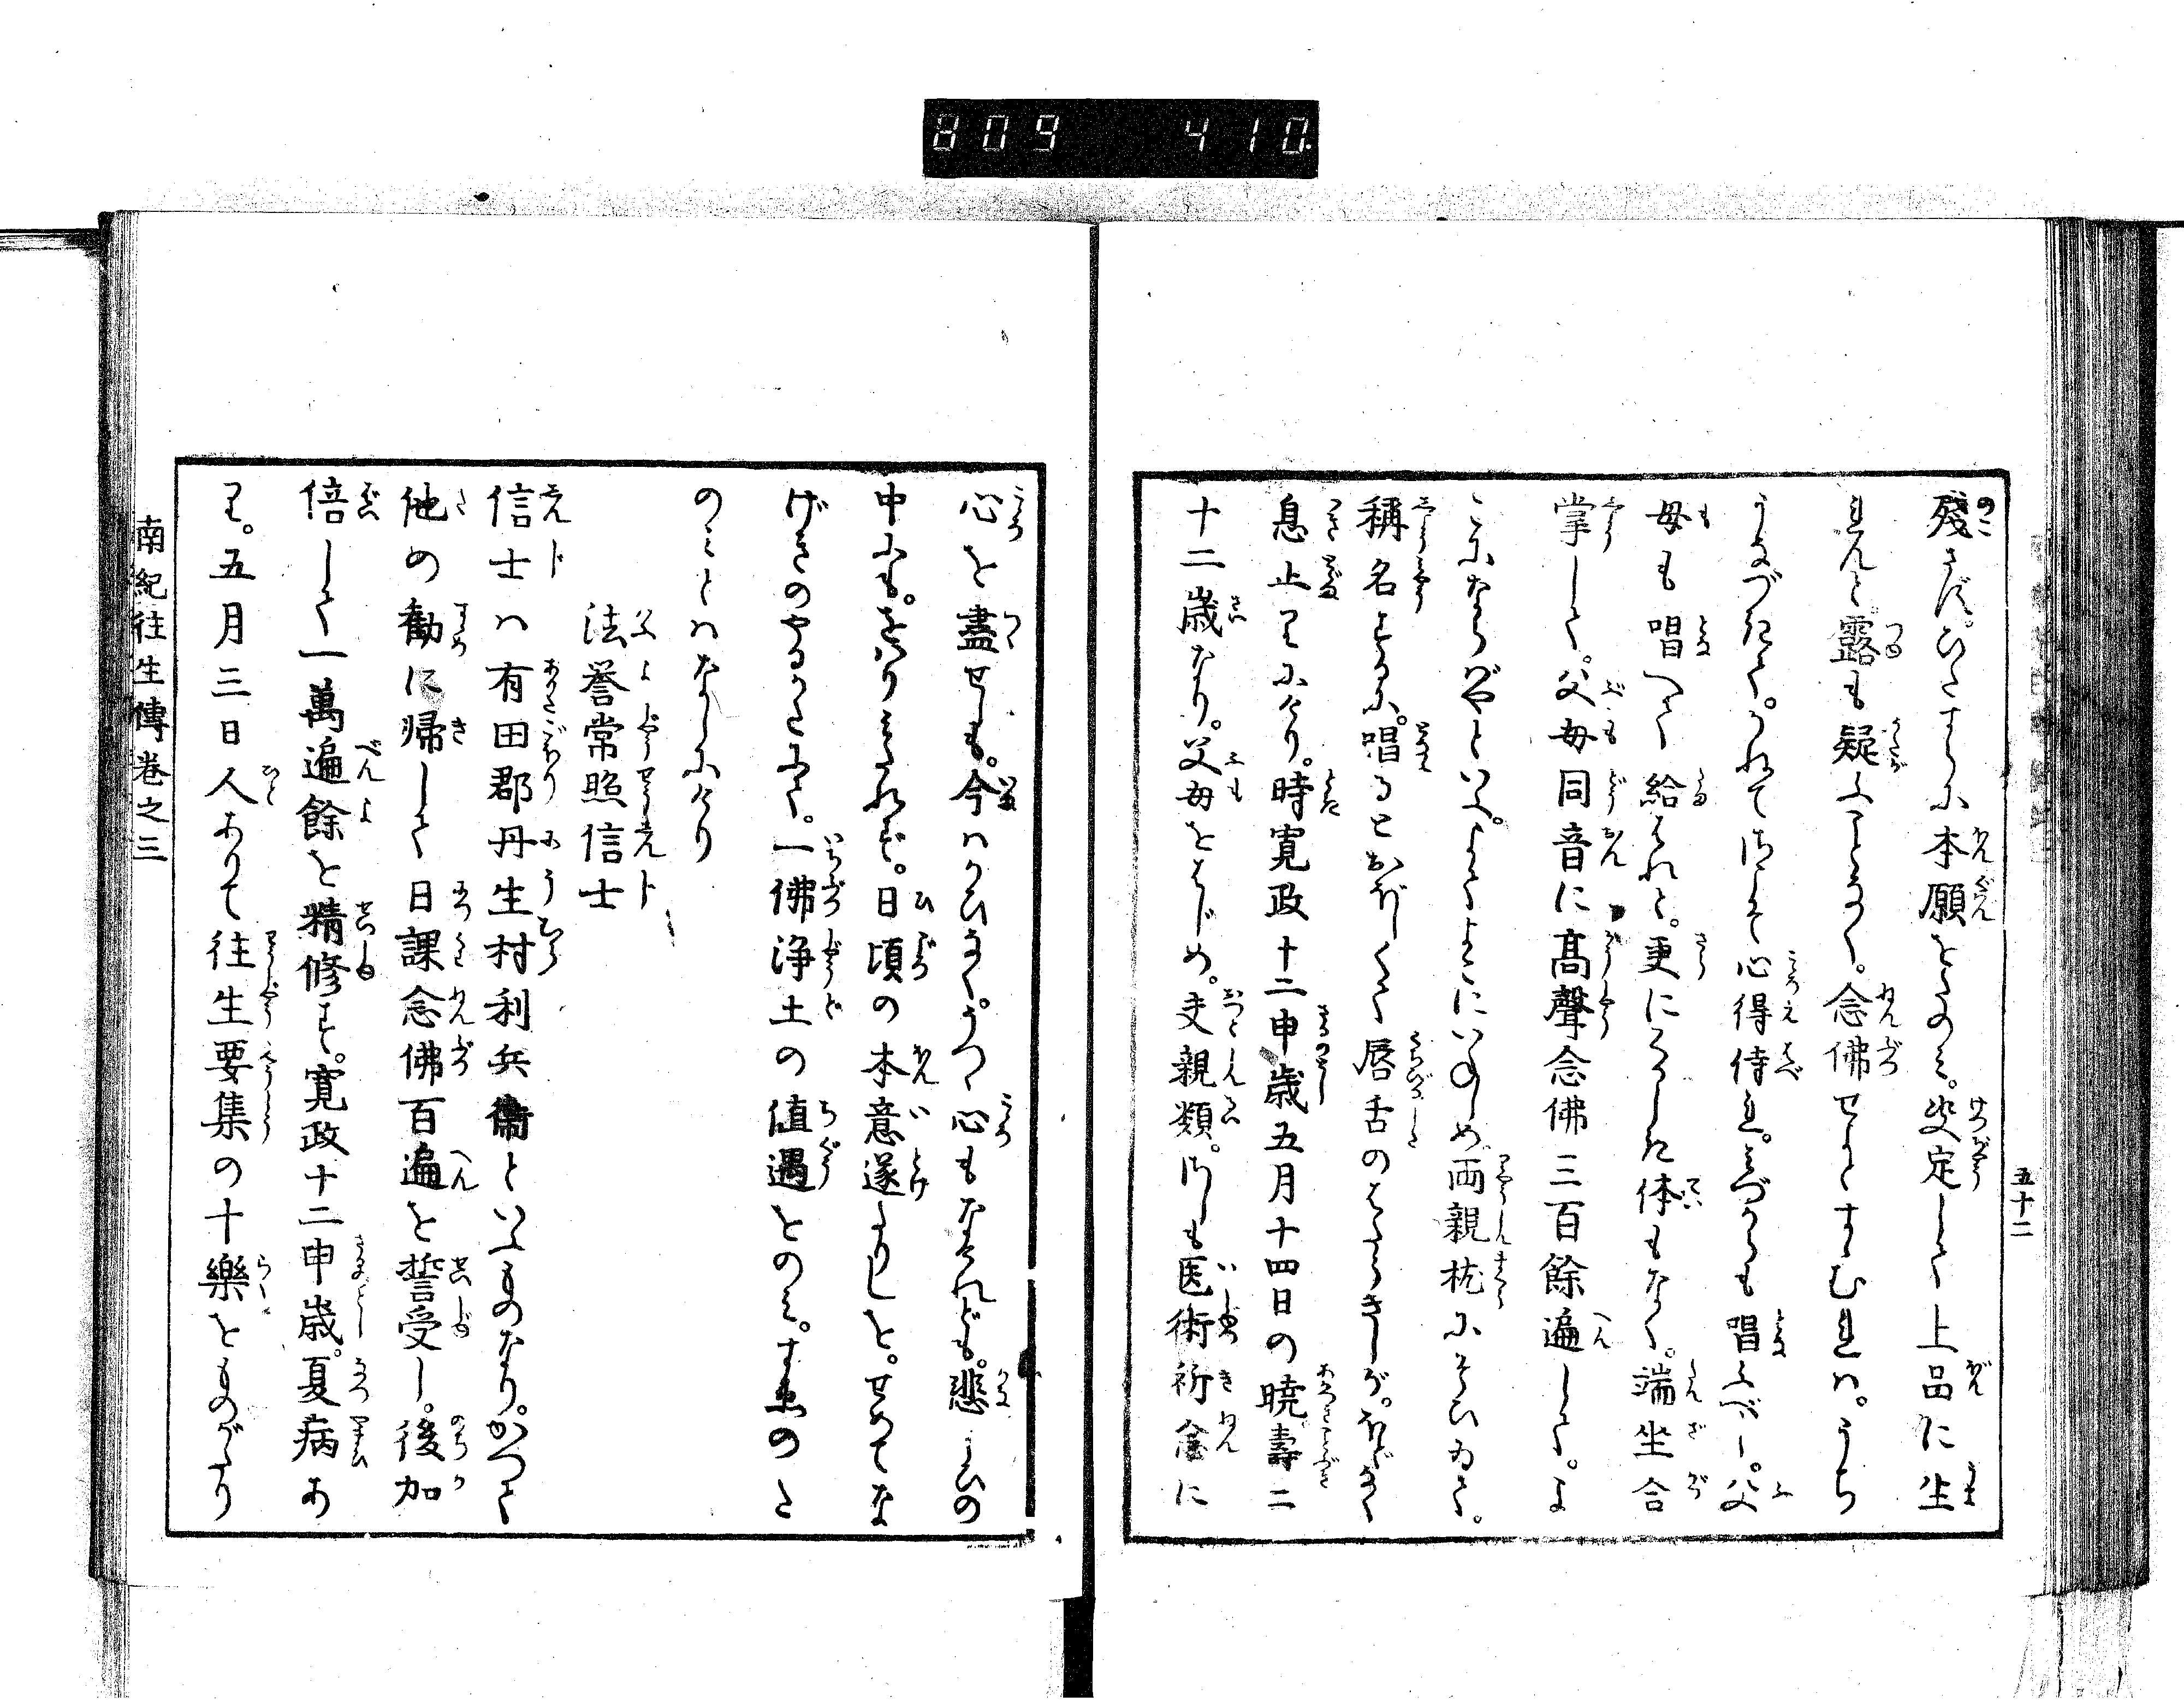 809 410
五十二
殘さず。ひたすらに本願をたのみ。决定して上品に生
れんと露も疑ふことなく。念佛せよとすゝむれは。うち
うなづきて。かねて内々心得侍れ。みづからも唱ふべし。父
母も唱へて給はれと。更にくるしき体もなく。端坐合
掌して。父母同音に高聲念佛三百餘遍して。よ
こにならばやといふ。よてよこにいねしめ両親枕にそひゐて。
稱名するに。唱るとおぼしくて唇舌のはたらきしが。ほどなく
息止りにけり。時寛政十二申歳五月十四日の暁壽二
十二歳なり。父母をはじめ。夫親類。しも医術祈念に
心を盡せしも。今はかひなく。うつゝ心もなけれども。悲しひの
中にも。をはりみだれず。日頃の本意遂たりしを。せめてな
げきのやるかたにて。一佛浄土の値遇をのみ。すゑのた
のみとはなしにけり
法誉常照信士
信士ハ有田郡丹生村利兵衞といふものなり。かつて
他の勸に帰して日課念佛百遍を誓受し。後加
倍して一萬遍餘を精修す。寛政十二申歳。夏病あ
り。五月三日人ありて往生要集の十樂をものがたり
南紀往生傳卷之三